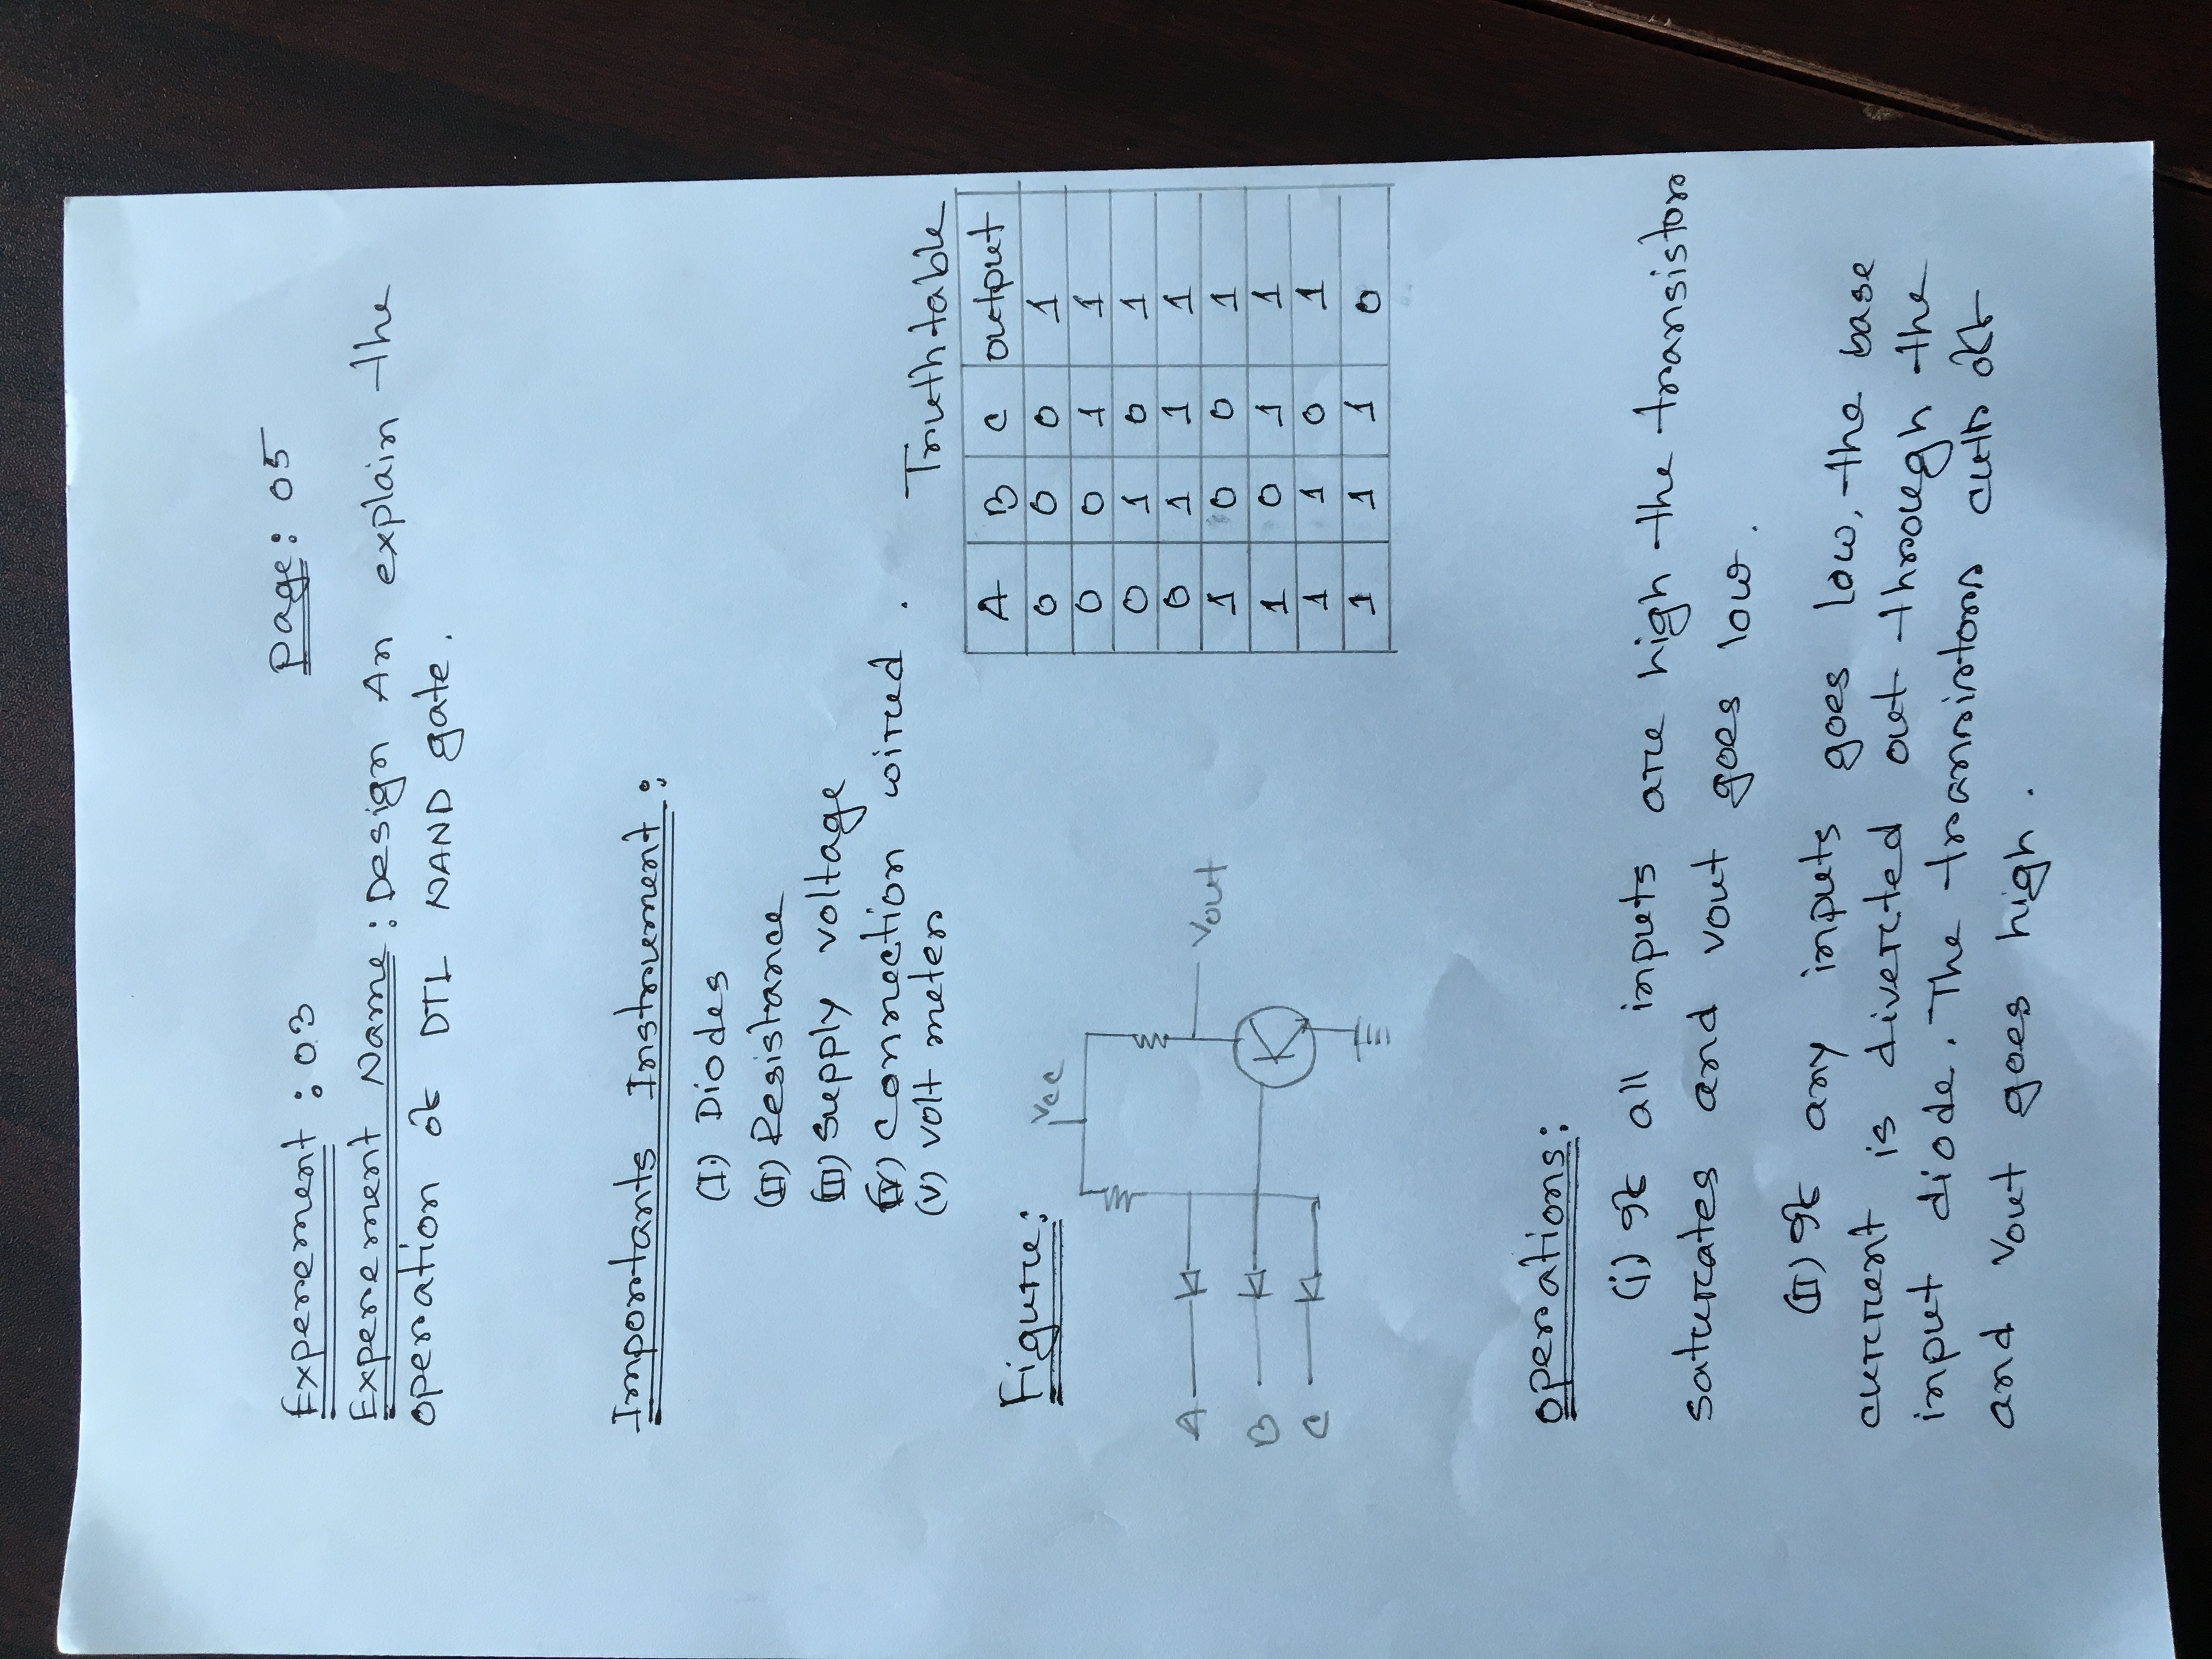 Experement : 03
page: 05
Experement Name: Design An explain the
operation of DTL NAND gate.
Importants Instrument:
(I) Diodes
(II) Resistance
(III) Supply voltage
(IV) Connection wired.
(V) volt meter
Truth table
A B C output
0 0 0 1
0 0 1 1
0 1 0 1
0 1 1 1
1 0 0 1
1 0 1 1
1 1 0 1
1 1 1 0
Figure:
Vcc
A
Vout
B
C
operations:
(i) If all inputs are high the transistor
saturates and vout goes low.
(II) If any inputs goes low, the base
current is diverted out through the
input diode. The transistors cutts off
and Vout goes high.